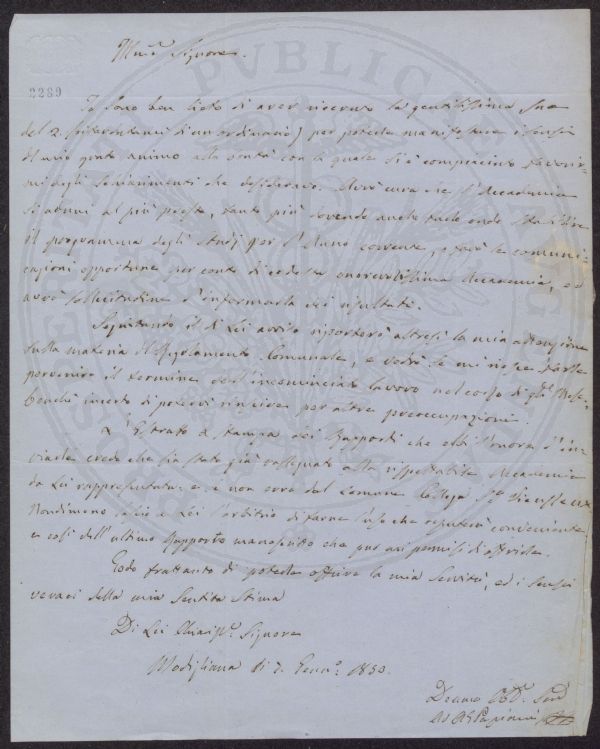 Signore
2289
Io sono ben lieto di aver ricevuto la gentilissima sua
del 2. di un ordinario) per poterle manifestare i sensi
del mio grato animo alla bontà con la quale si è compiaciuto favorir-
mi degli schiarimenti che desideravo. Avrò cura che l'Accademia
si aduni al più presto, tanto più dovendo anche
il programma degli Studj per l'Anno corrente, e farò le comuni-
cazioni opportune per conto di codesta onorevolissima Accademia, ed
avrò sollecitudine d'informarla dei risultati.
Seguitando il di Lei avviso riporterò altresì la mia attenzione
sulla materia del Regolamento Comunale, e vedrò se mi riesce farle
pervenire il termine dell'incominciato lavoro nel corso di q.to Mese,
benchè incerto di potervi riuscire per altre preoccupazioni.
L'Estratto a stampa dei Rapporti che ebbi l'onore d'in-
viarle credo che sia stato già rassegnato alla rispettabile Accademia
da Lei rappresentata e
Nondimeno a Lei l'arbitrio di farne l'uso che reputerà conveniente
e così dell'ultimo Rapporto manoscritto che pur mi permisi di offrirle.
Godo frattanto di poterle offrire la mia servitù, ed i sensi
veraci della mia sentita stima
Di Lei Signore
Modigliana di 7. Genn.o 1850.